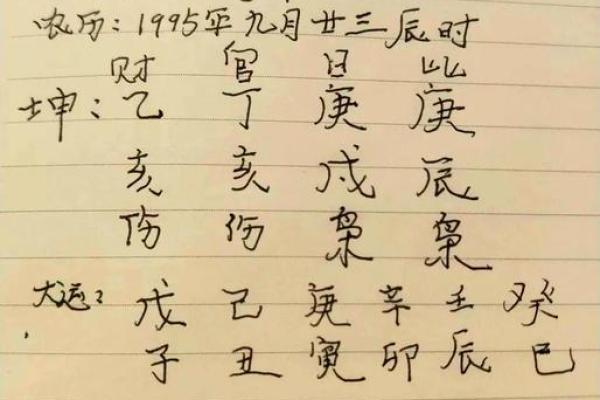 农历：1995年九月廿三辰时
财 官 日 比
坤：乙 丁 庚 庚
亥 亥 戌 辰
伤 伤 枭 枭
大运：戊 己 庚 辛 壬 癸
子 丑 寅 卯 辰 巳